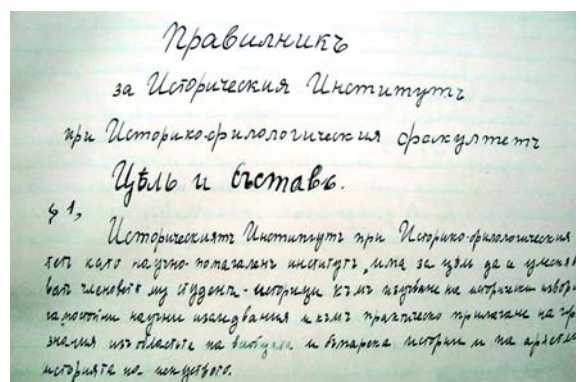 Правилникъ
за Историческия Институтъ
при Историко-филологическия факултетъ
Цѣль и съставъ.
§ 1,
Историческиятъ Институтъ при Историко-филологическия
тетъ като научно-помагаленъ институтъ, има за цѣль да
членоветѣ му студенти-историци къмъ изучване на исторически извори
самостойни научни изследвания и къмъ практическо прилагане на
знания изъ областьта на всеобщата и българска история и на
историята на изкуството.